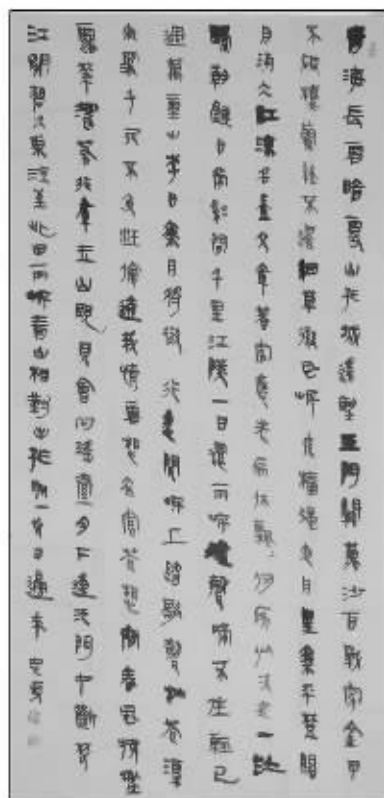 青海長雲暗雪山孤城遙望玉門關黃沙百戰穿金甲
不破樓蘭終不還細草微風岸危檣獨夜舟星垂平野闊
月涌大江流名豈文章著官應老病休飄飄何所似天地一沙
鷗朝辭白帝彩雲間千里江陵一日還兩岸猿聲啼不住輕舟已
過萬重山李白乘舟將欲行忽聞岸上踏歌聲桃花潭
水深千尺不及汪倫送我情雲想衣裳花想容春風拂檻
露華濃若非群玉山頭見會向瑤臺月下逢天門中斷楚
江開碧水東流至此回兩岸青山相對出孤帆一片日邊來